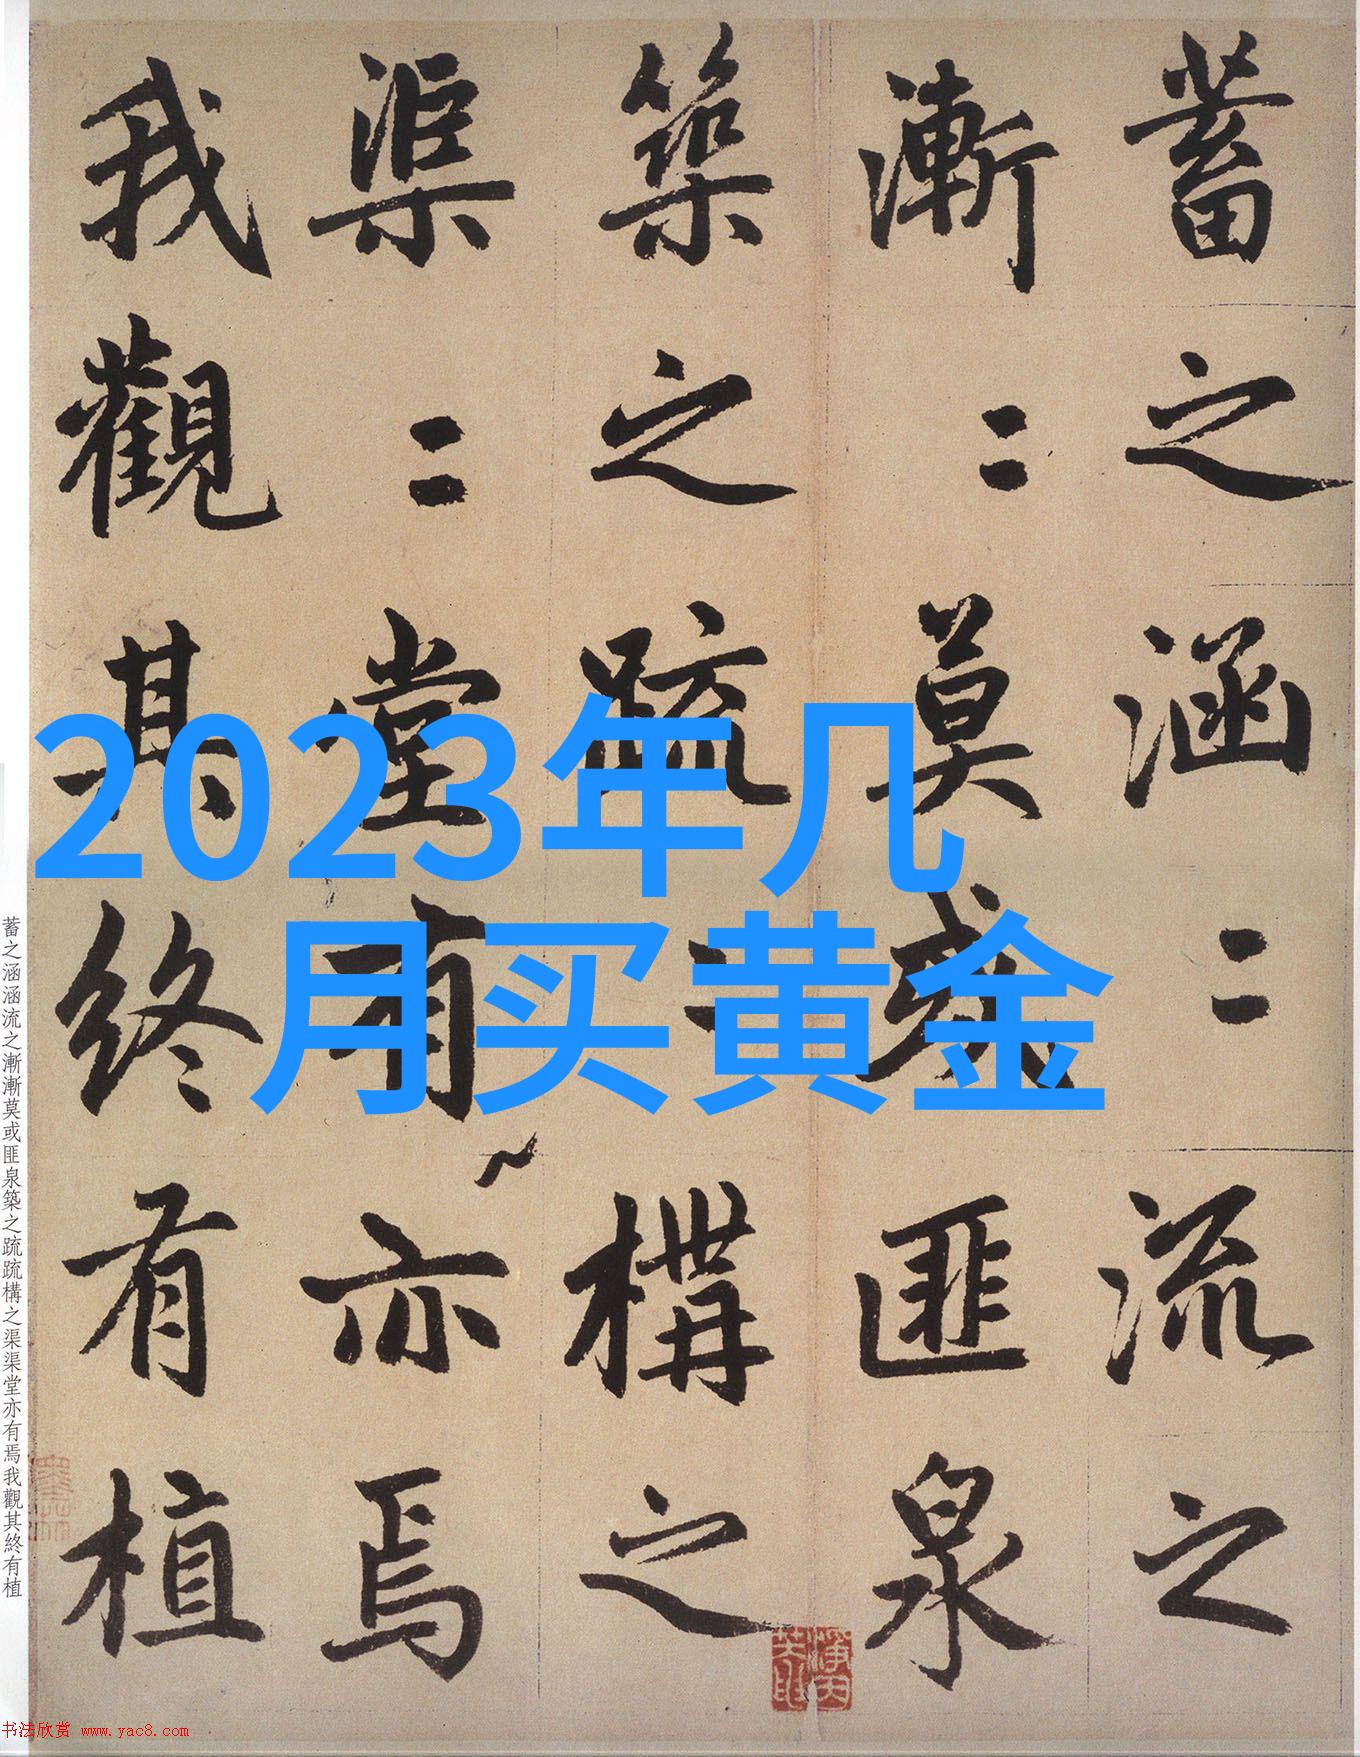 2023年几
月买黄金
蓄之涵〻流之
漸〻莫或匪泉
築之疏〻構之
渠〻堂有亦焉
我觀其終有植
蓄之涵涵流之漸漸莫或匪泉築之疏疏構之渠渠堂亦有焉我觀其終有植
书法欣赏 www.yac8.com